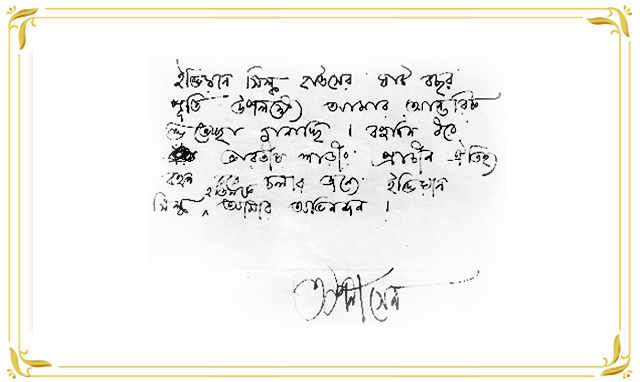 ইন্ডিয়ান সিল্ক হাউসের ষাট বছর
পূর্তি উপলক্ষ্যে আমার আন্তরিক
শুভেচ্ছা জানাচ্ছি । বহুদিন ধরে
ভারতীয় শাড়ীর প্রাচীন ঐতিহ্য
বহন করে চলার জন্যে ইন্ডিয়ান
সিল্ক হাউসকে আমার অভিনন্দন ।
অপর্ণা সেন